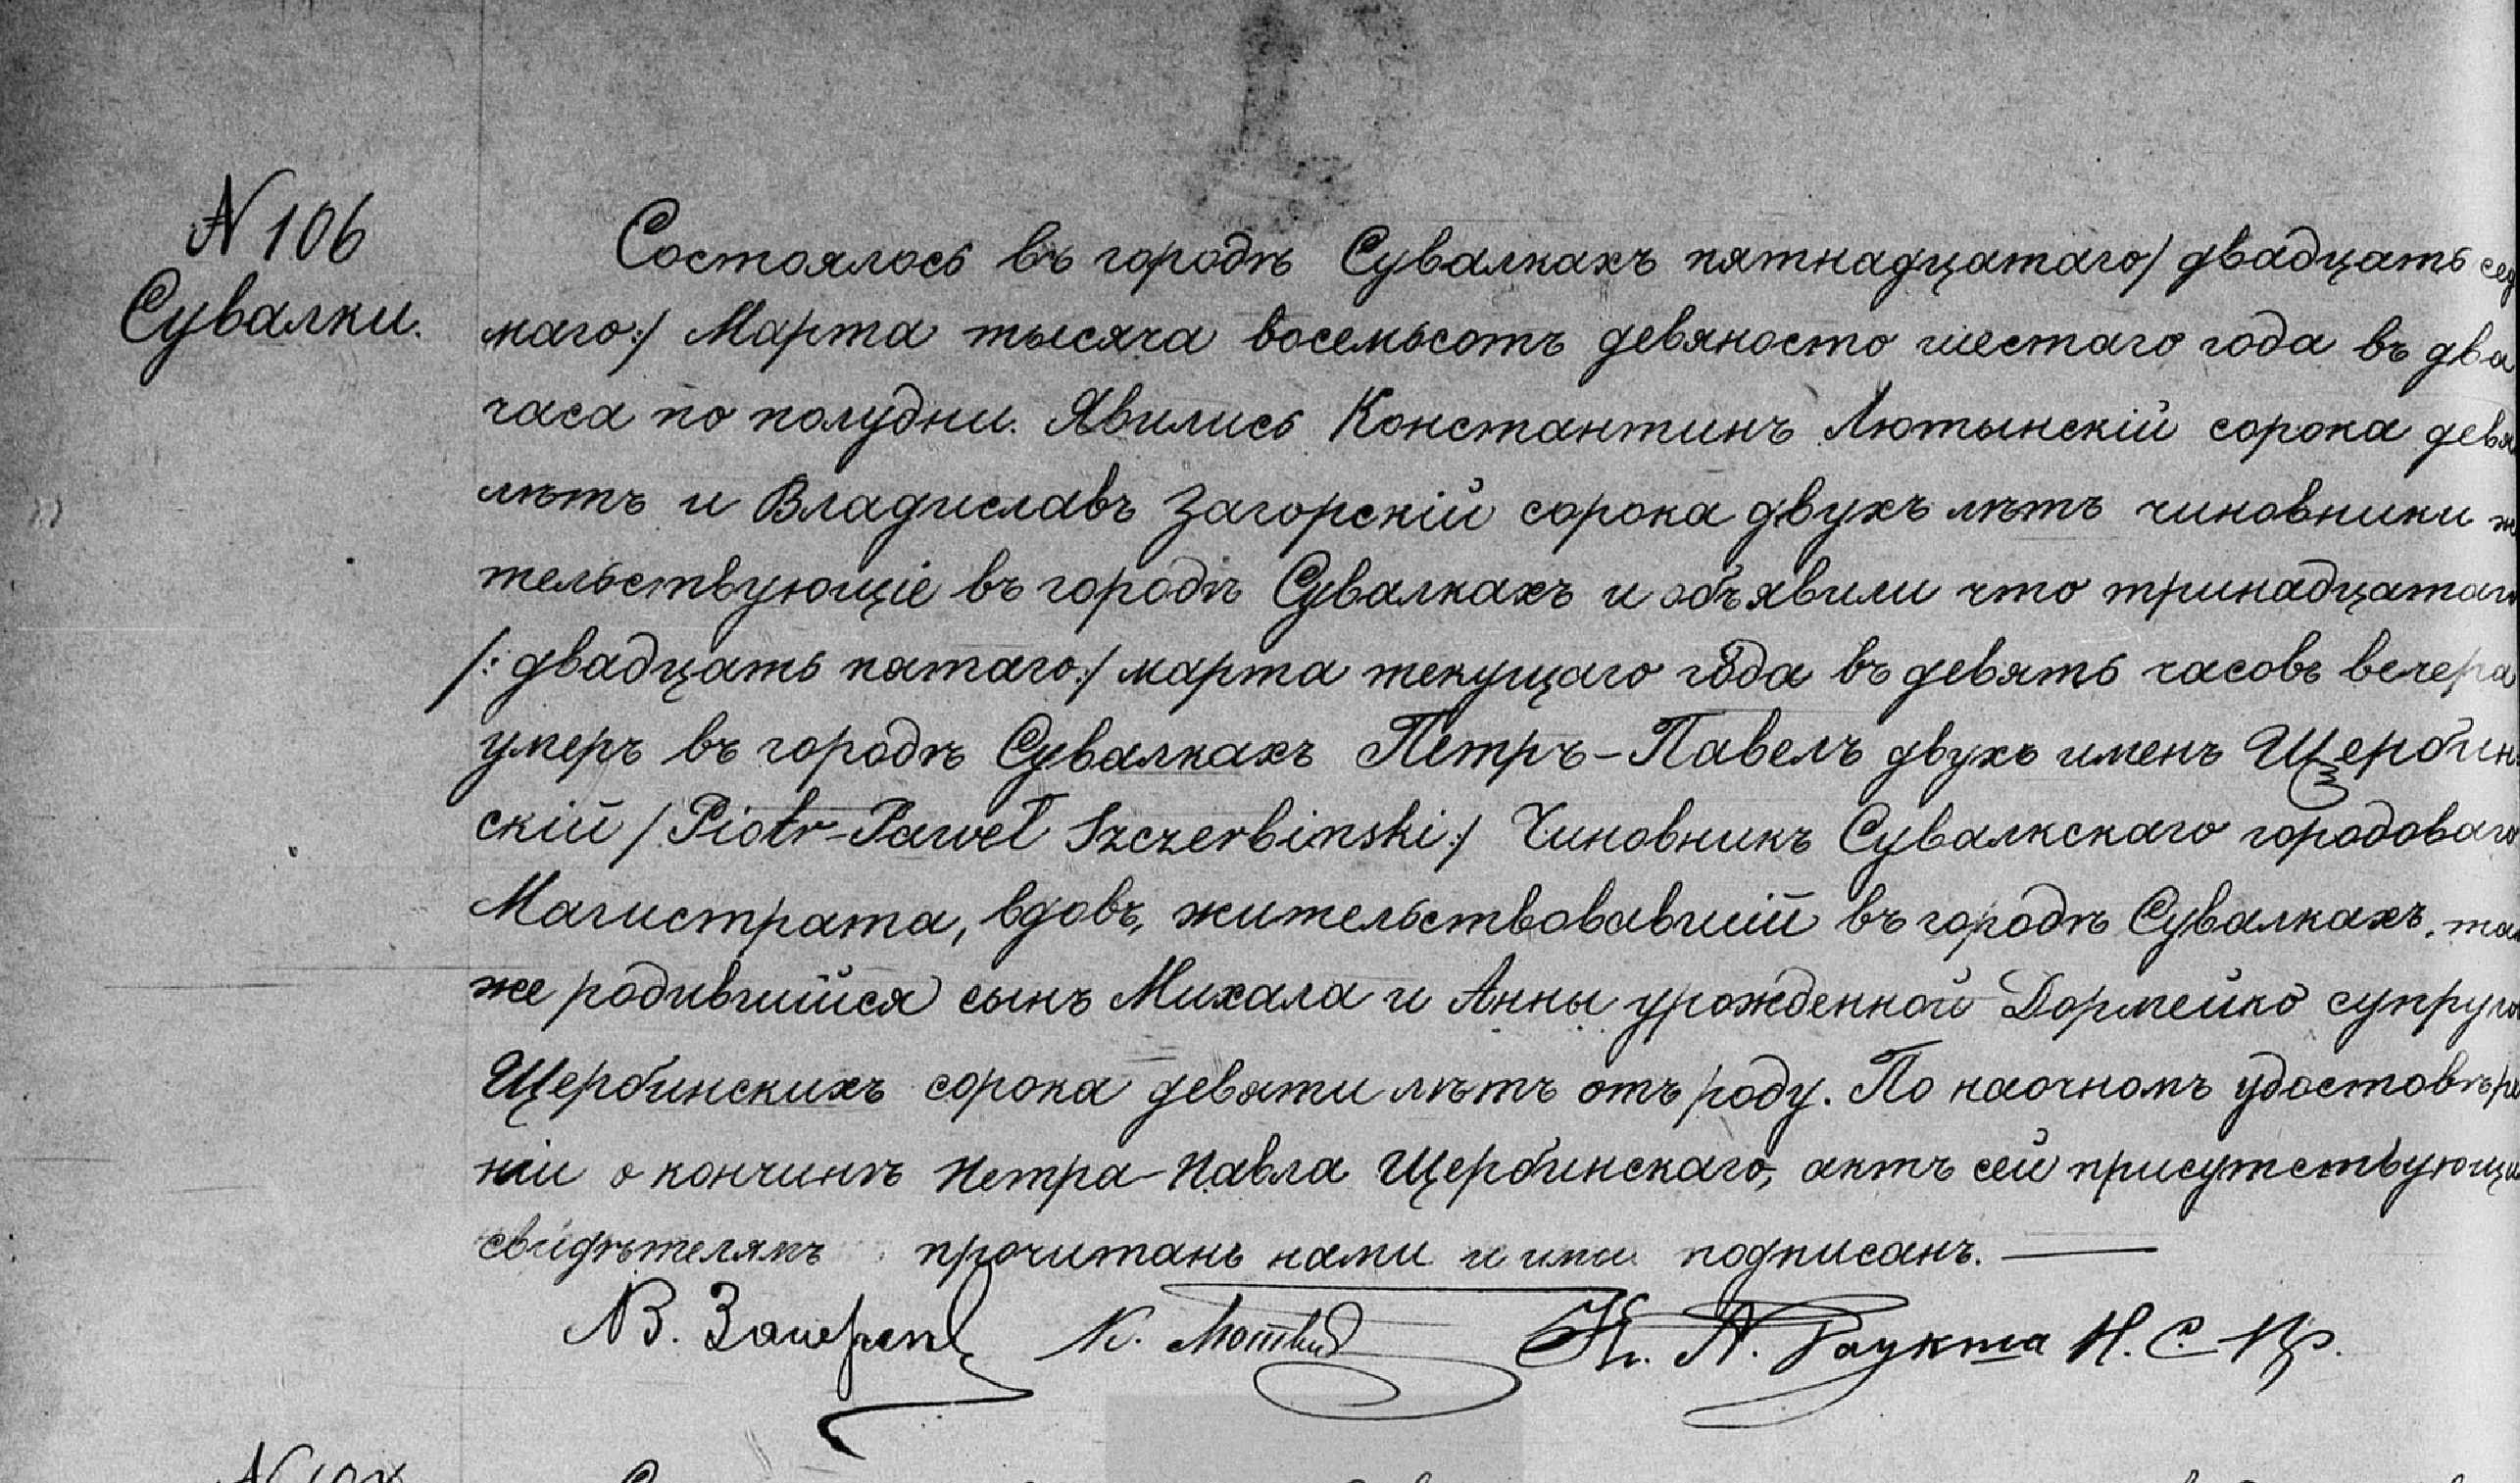 N 106
Сувалки.
Состоялось въ городѣ Сувалкахъ пятнадцатаго/ двадцать сед
маго:/ Марта тысяча восемьсотъ девяносто шестаго года въ два
часа по полудни. Явились Константинъ Лютынскій сорока девя
лѣтъ и Владиславъ Загорскій сорока двухъ лѣтъ чиновники ж
тельствующіе въ городѣ Сувалкахъ и объявили что тринадцатаго
/: двадцать пятаго:/ марта текущаго года въ девять часовъ вечера
умеръ въ городѣ Сувалкахъ Петръ-Павелъ двухъ именъ Щербин
скій /Piotr-Paweł Szczerbinski:/ Чиновникъ Сувалкскаго городоваго
Магистрата, вдовъ, жительствовавшій въ городѣ Сувалкахъ, там
же родившійся сынъ Михала и Анны урожденной Дормейко супруго
Щербинскихъ сорока девяти лѣтъ отъ роду. По наочномъ удостовѣре
ніи о кончинѣ Петра-Павла Щербинскаго, актъ сей присутствующи
свидѣтелямъ прочитанъ нами и ими подписанъ.
В. К. Кс. А. Н. С. Пр.